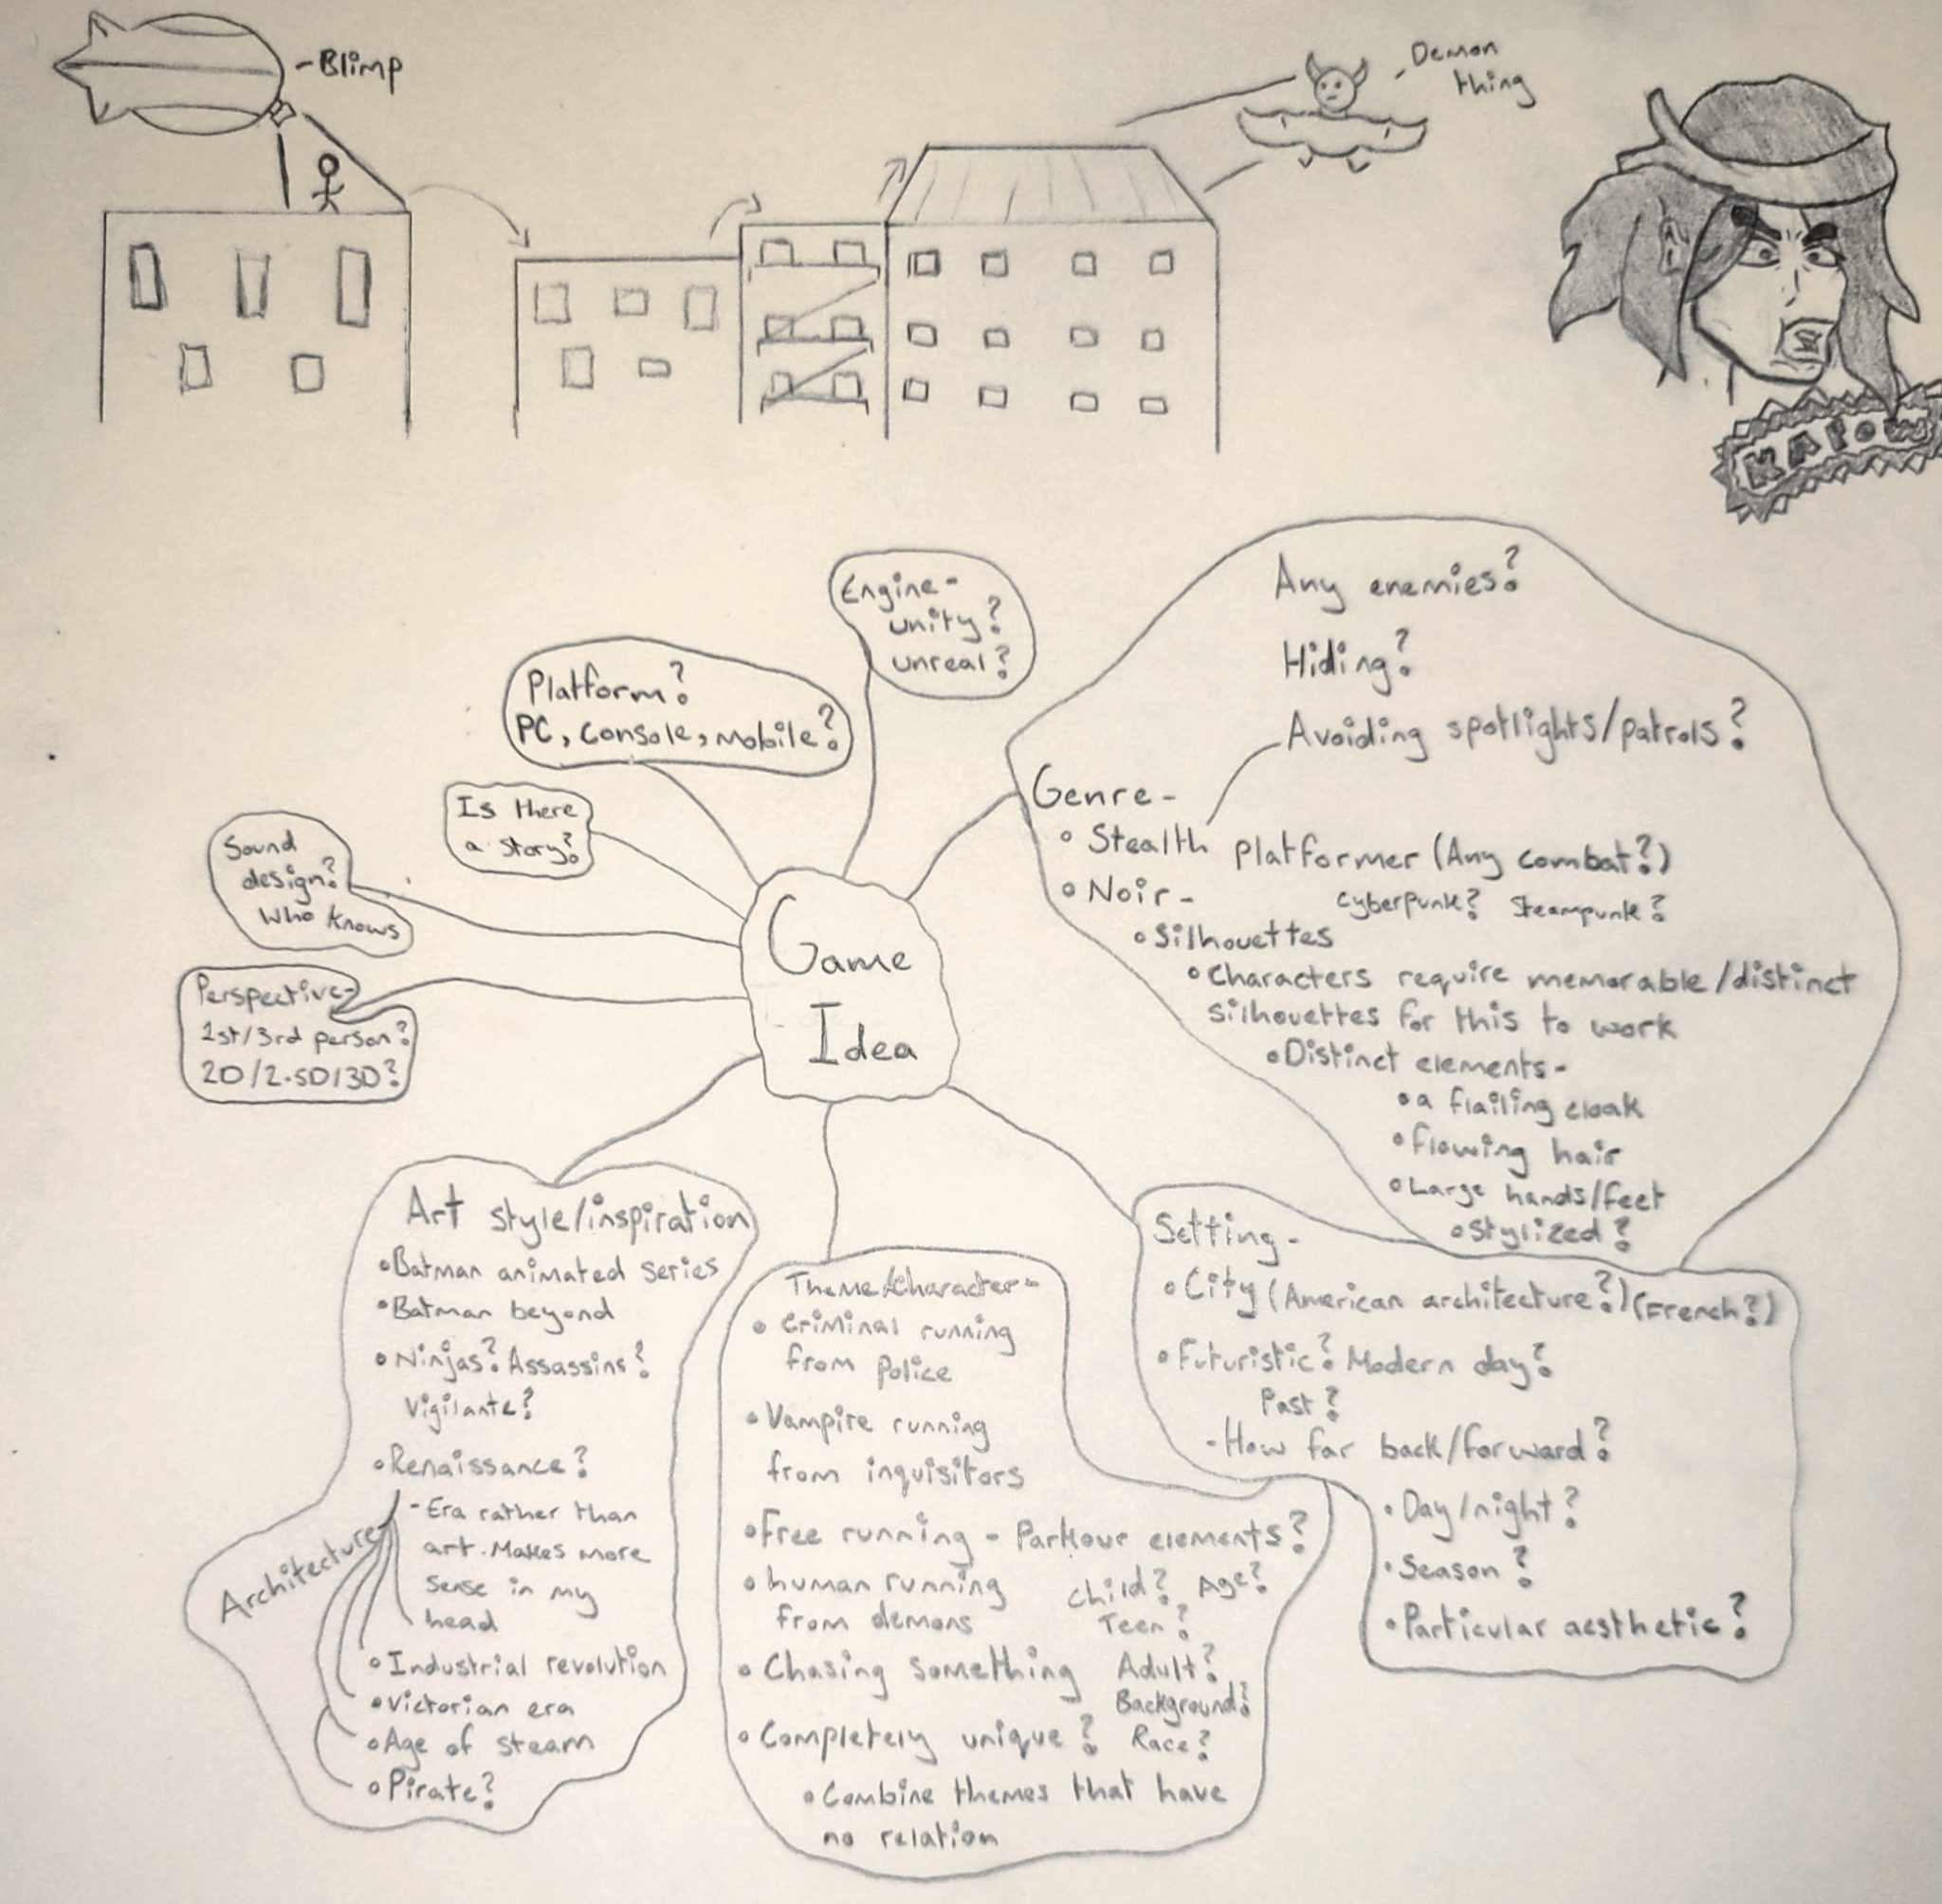 -Blimp
-Demon
thing
KAPOW
Engine-
unity?
unreal?
Platform?
PC, console, mobile?
Is there
a story?
Sound
design?
Who knows
Perspective-
1st/3rd person?
2D/2.5D/3D?
Game
Idea
Any enemies?
Hiding?
Avoiding spotlights/patrols?
Genre-
• Stealth Platformer (Any combat?)
• Noir- Cyberpunk? Steampunk?
• Silhouettes
• Characters require memorable/distinct
silhouettes for this to work
• Distinct elements-
• a flailing cloak
• flowing hair
• Large hands/feet
• Stylized?
Setting-
• City (American architecture?) (French?)
• Futuristic? Modern day?
Past?
-How far back/forward?
• Day/night?
• Season?
• Particular aesthetic?
Theme/Character-
• Criminal running
from police
• Vampire running
from inquisitors
• Free running - Parkour elements?
• human running
from demons
Child? Age?
Teen?
• Chasing something
Adult?
Background?
• Completely unique?
Race?
• Combine themes that have
no relation
Art style/inspiration
• Batman animated series
• Batman beyond
• Ninjas? Assassins?
Vigilante?
• Renaissance?
-Era rather than
art. Makes more
sense in my
head
Architecture
• Industrial revolution
• Victorian era
• Age of steam
• Pirate?